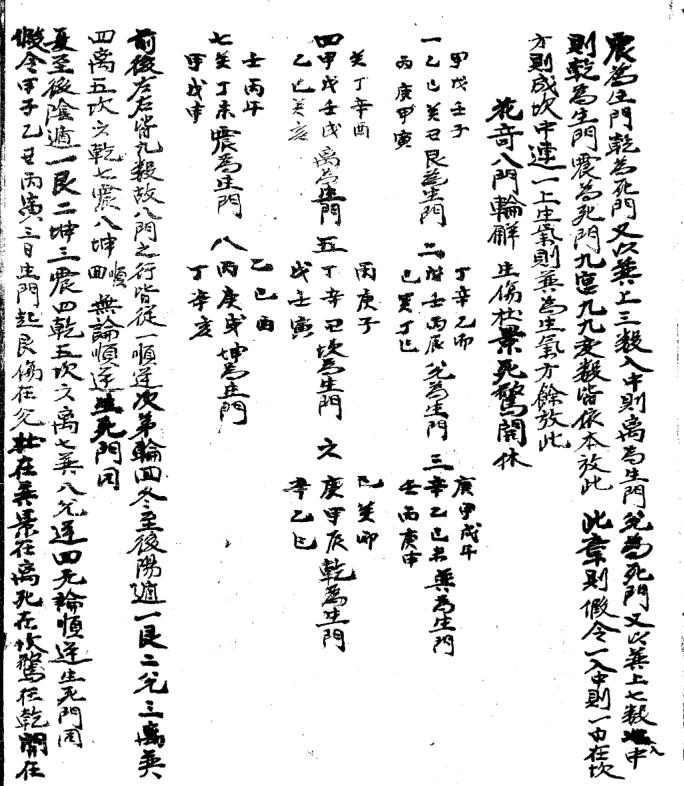 震為生門乾為死門又以巽上三数入中則离為生門兌為死門又以巽上七数入中
則乾為生門震為死門九宮九九变数皆依本放此 此章則假令一入中則一白在坎
方則成坎中連一上生氣則巽為生氣方餘放此
花奇八門輪解 生傷杜景死驚開休
一 甲戊壬子 乙己癸丑 丙庚甲寅 艮為生門 二 丁辛乙卯 戊壬丙辰 己癸丁巳 兌為生門 三 庚甲戊午 辛乙己未 壬丙庚申 巽為生門
四 癸丁辛酉 甲戊壬戌 乙己癸亥 离為生門 五 丙庚子 丁辛丑 戊壬寅 坎為生門 六 己癸卯 庚甲辰 辛乙巳 乾為生門
七 壬丙午 癸丁未 甲戊申 震為生門 八 乙己酉 丙庚戌 丁辛亥 坤為生門
前後左右皆九数故八門之行皆從一順逆次第輪回冬至後陽遁一艮二兌三巽
四离五坎六乾七震八坤 順回 無論順逆生死門同
夏至後陰遁一艮二坤三震四乾五坎六离七巽八兌逆回无論順逆生死門同
假令甲子乙丑丙寅三日生門起艮傷在兌杜在巽景在离死在坎驚在乾開在